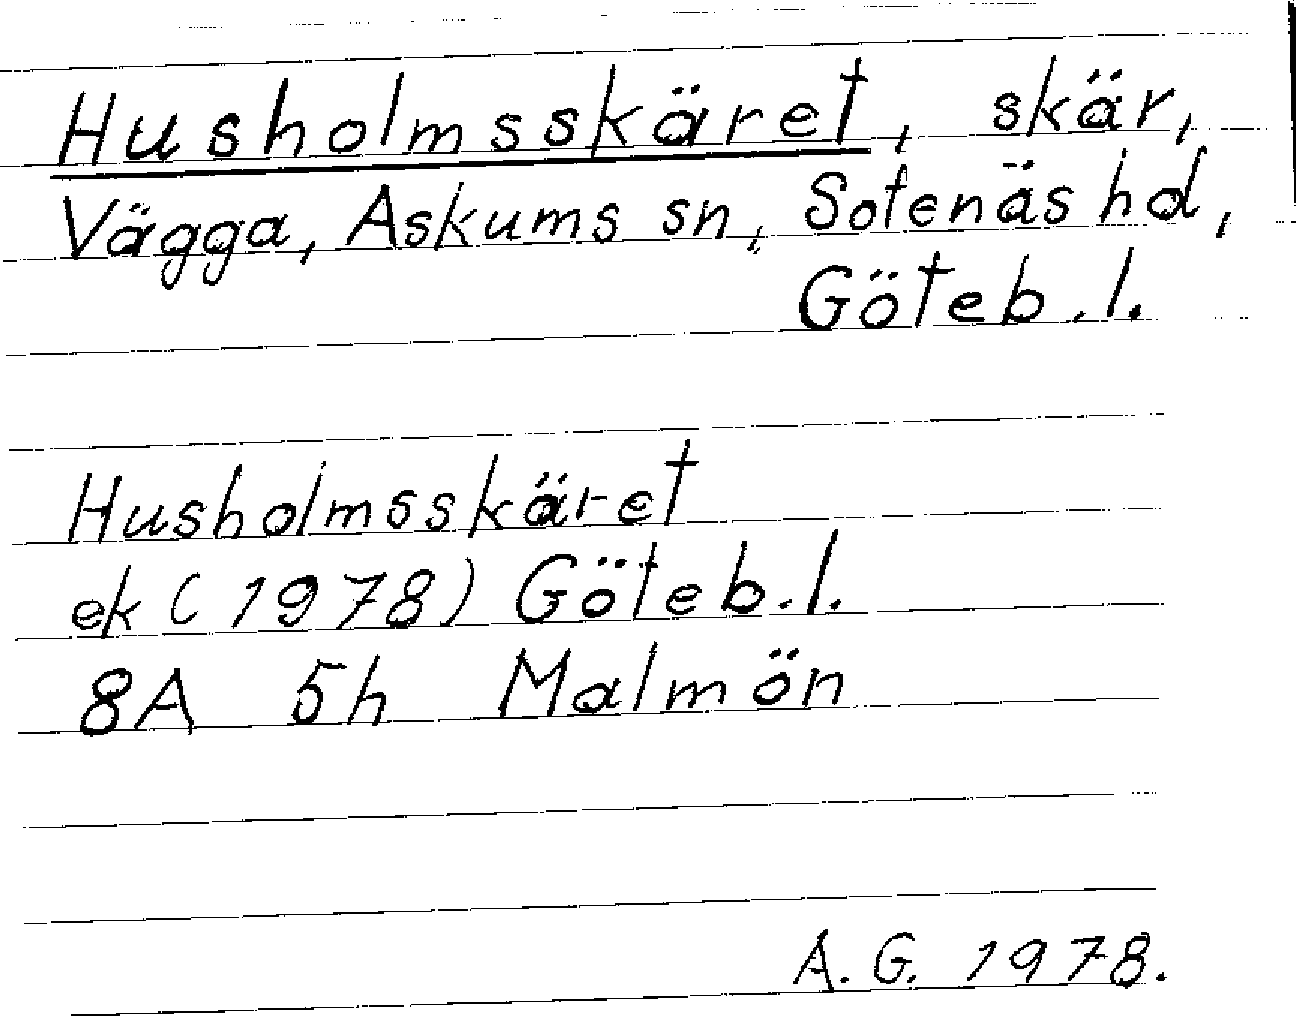 Husholmsskäret, skär,
Vägga, Askums sn, Sotenäs hd,
Göteb.l.
Husholmsskäret
ek (1978) Göteb.l.
8A 5h Malmön
A.G. 1978.